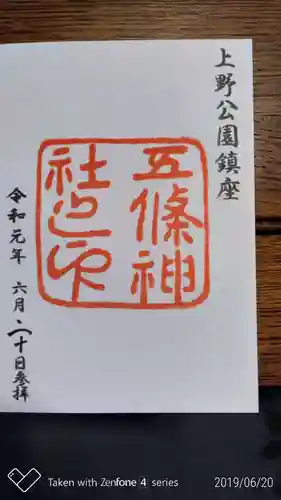 上野公園鎮座
五條神
社之印
令和元年 六月二十日参拝
Taken with Zenfone 4 series
2019/06/20